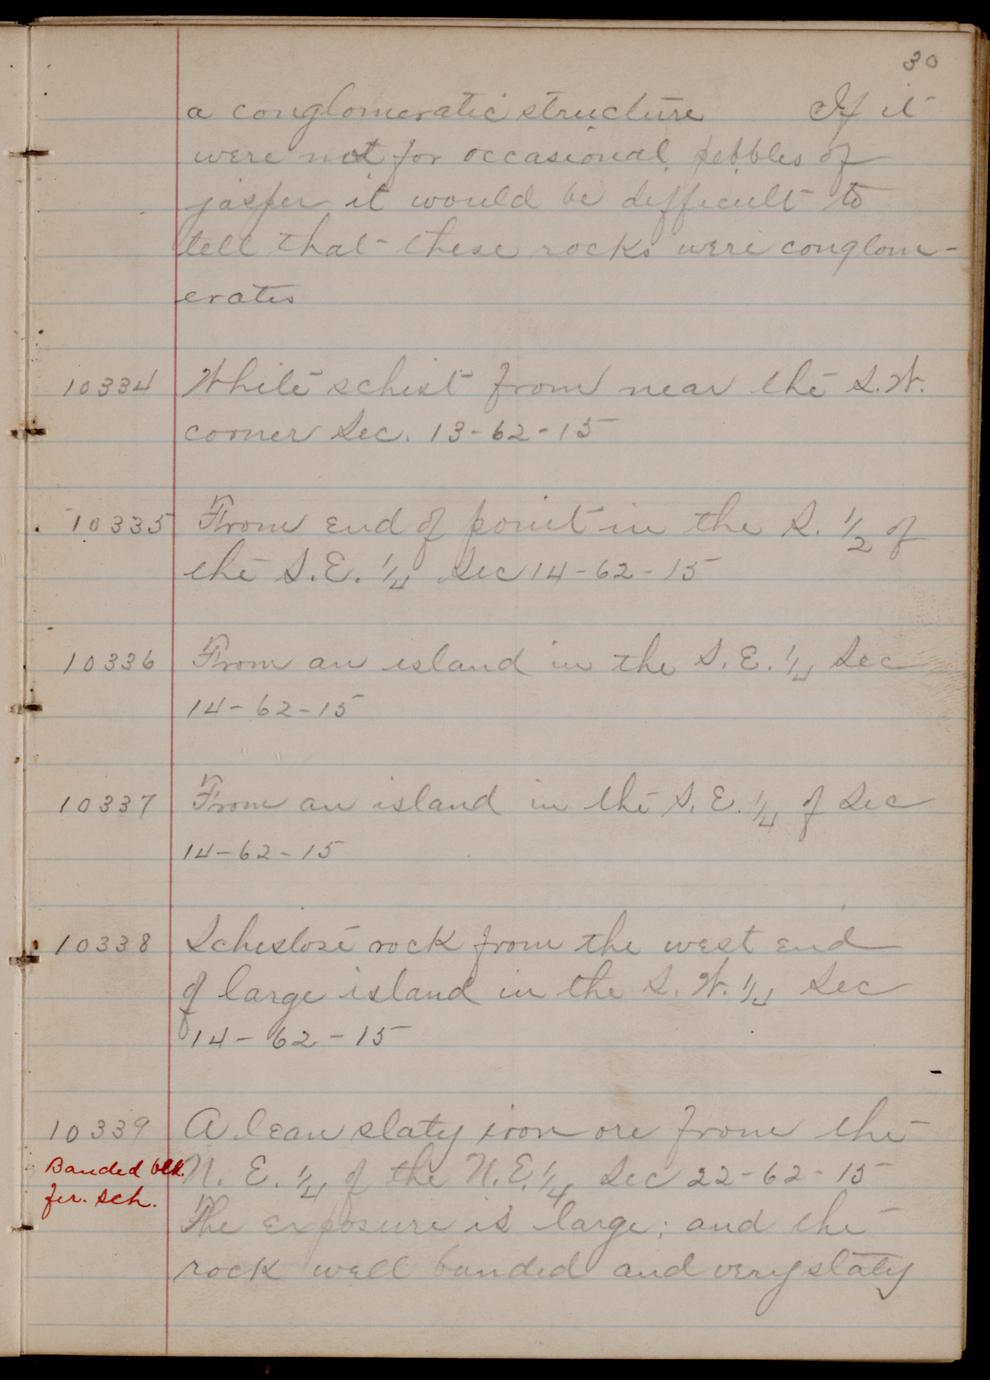 30
a conglomeratic structure If it
were not for occasional pebbles of
jasper it would be difficult to
tell that these rocks were conglom-
erates
10334 White schist from near the S.W.
corner Sec. 13-62-15
10335 From end of point in the S. 1/2 of
the S.E. 1/4 Sec 14-62-15
10336 From an island in the S.E. 1/4 Sec
14-62-15
10337 From an island in the S.E. 1/4 of Sec
14-62-15
10338 Schistose rock from the west end
of large island in the S.W. 1/4 Sec
14-62-15
10339 A lean slaty iron ore from the
Banded blk. N.E. 1/4 of the N.E. 1/4 Sec 22-62-15
fer. sch. The exposure is large; and the
rock well banded and very slaty